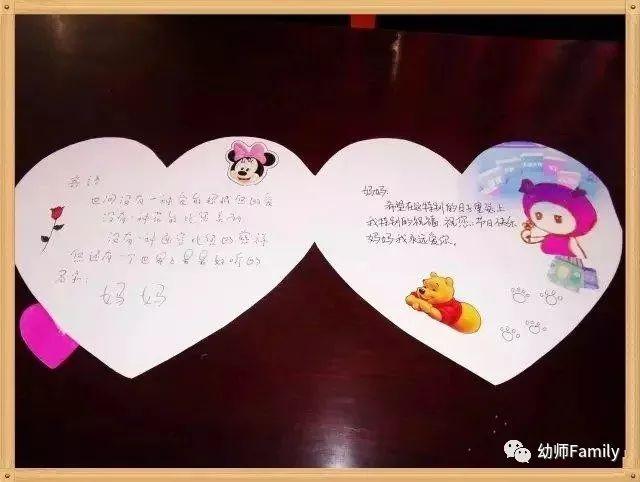 寄语
世间没有一种爱能超越您的爱
没有一种花能比您美丽
没有一种面容比您的慈祥
您还有一个世界上最最好听的
名字:
妈 妈
妈妈:
希望在这特别的日子里送上
我特别的祝福 祝您:节日快乐
妈妈我永远爱您。
幼师Family